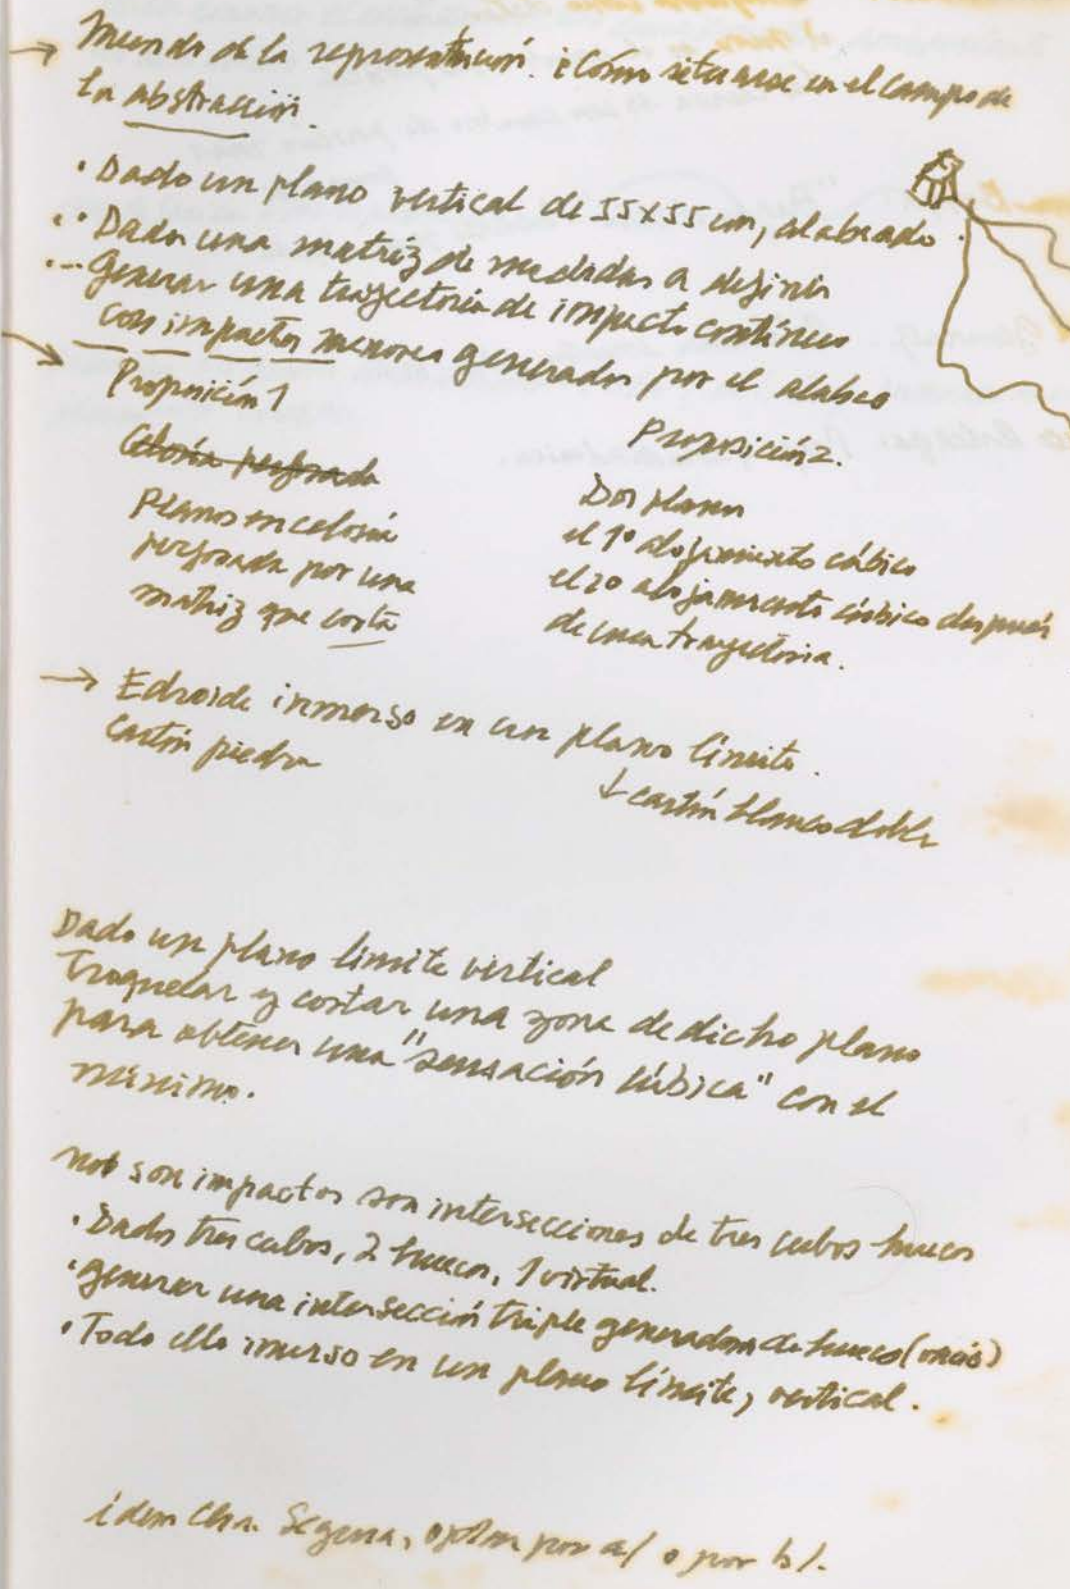 → Mundo de la representación. ¿Cómo situarse en el campo de
la abstracción.
· Dado un plano vertical de 55x55 cm, alabeado.
·· Dada una matriz de medidas a definir
··· generar una trayectoria de impacto contínuo
con impactos menores generados por el alabeo
→ Proposición 1
Celosía perforada
Planos en celosía
perforada por una
matriz que corta
Proposición 2.
Dos planos
el 1º alojamiento cúbico
el 2º alojamiento cúbico después
de una trayectoria.
→ Edroide inmerso en un plano límite.
cartón piedra
↓ cartón blanco doble
Dado un plano límite vertical
Troquelar y cortar una zona de dicho plano
para obtener una "sensación cúbica" con el
mínimo.
no son impactos son intersecciones de tres cubos huecos
· Dados tres cubos, 2 huecos, 1 virtual.
· generar una intersección triple generadora de hueco (vacío)
· Todo ello inmerso en un plano límite, vertical.
idem Segura, optar por a/ o por b/.